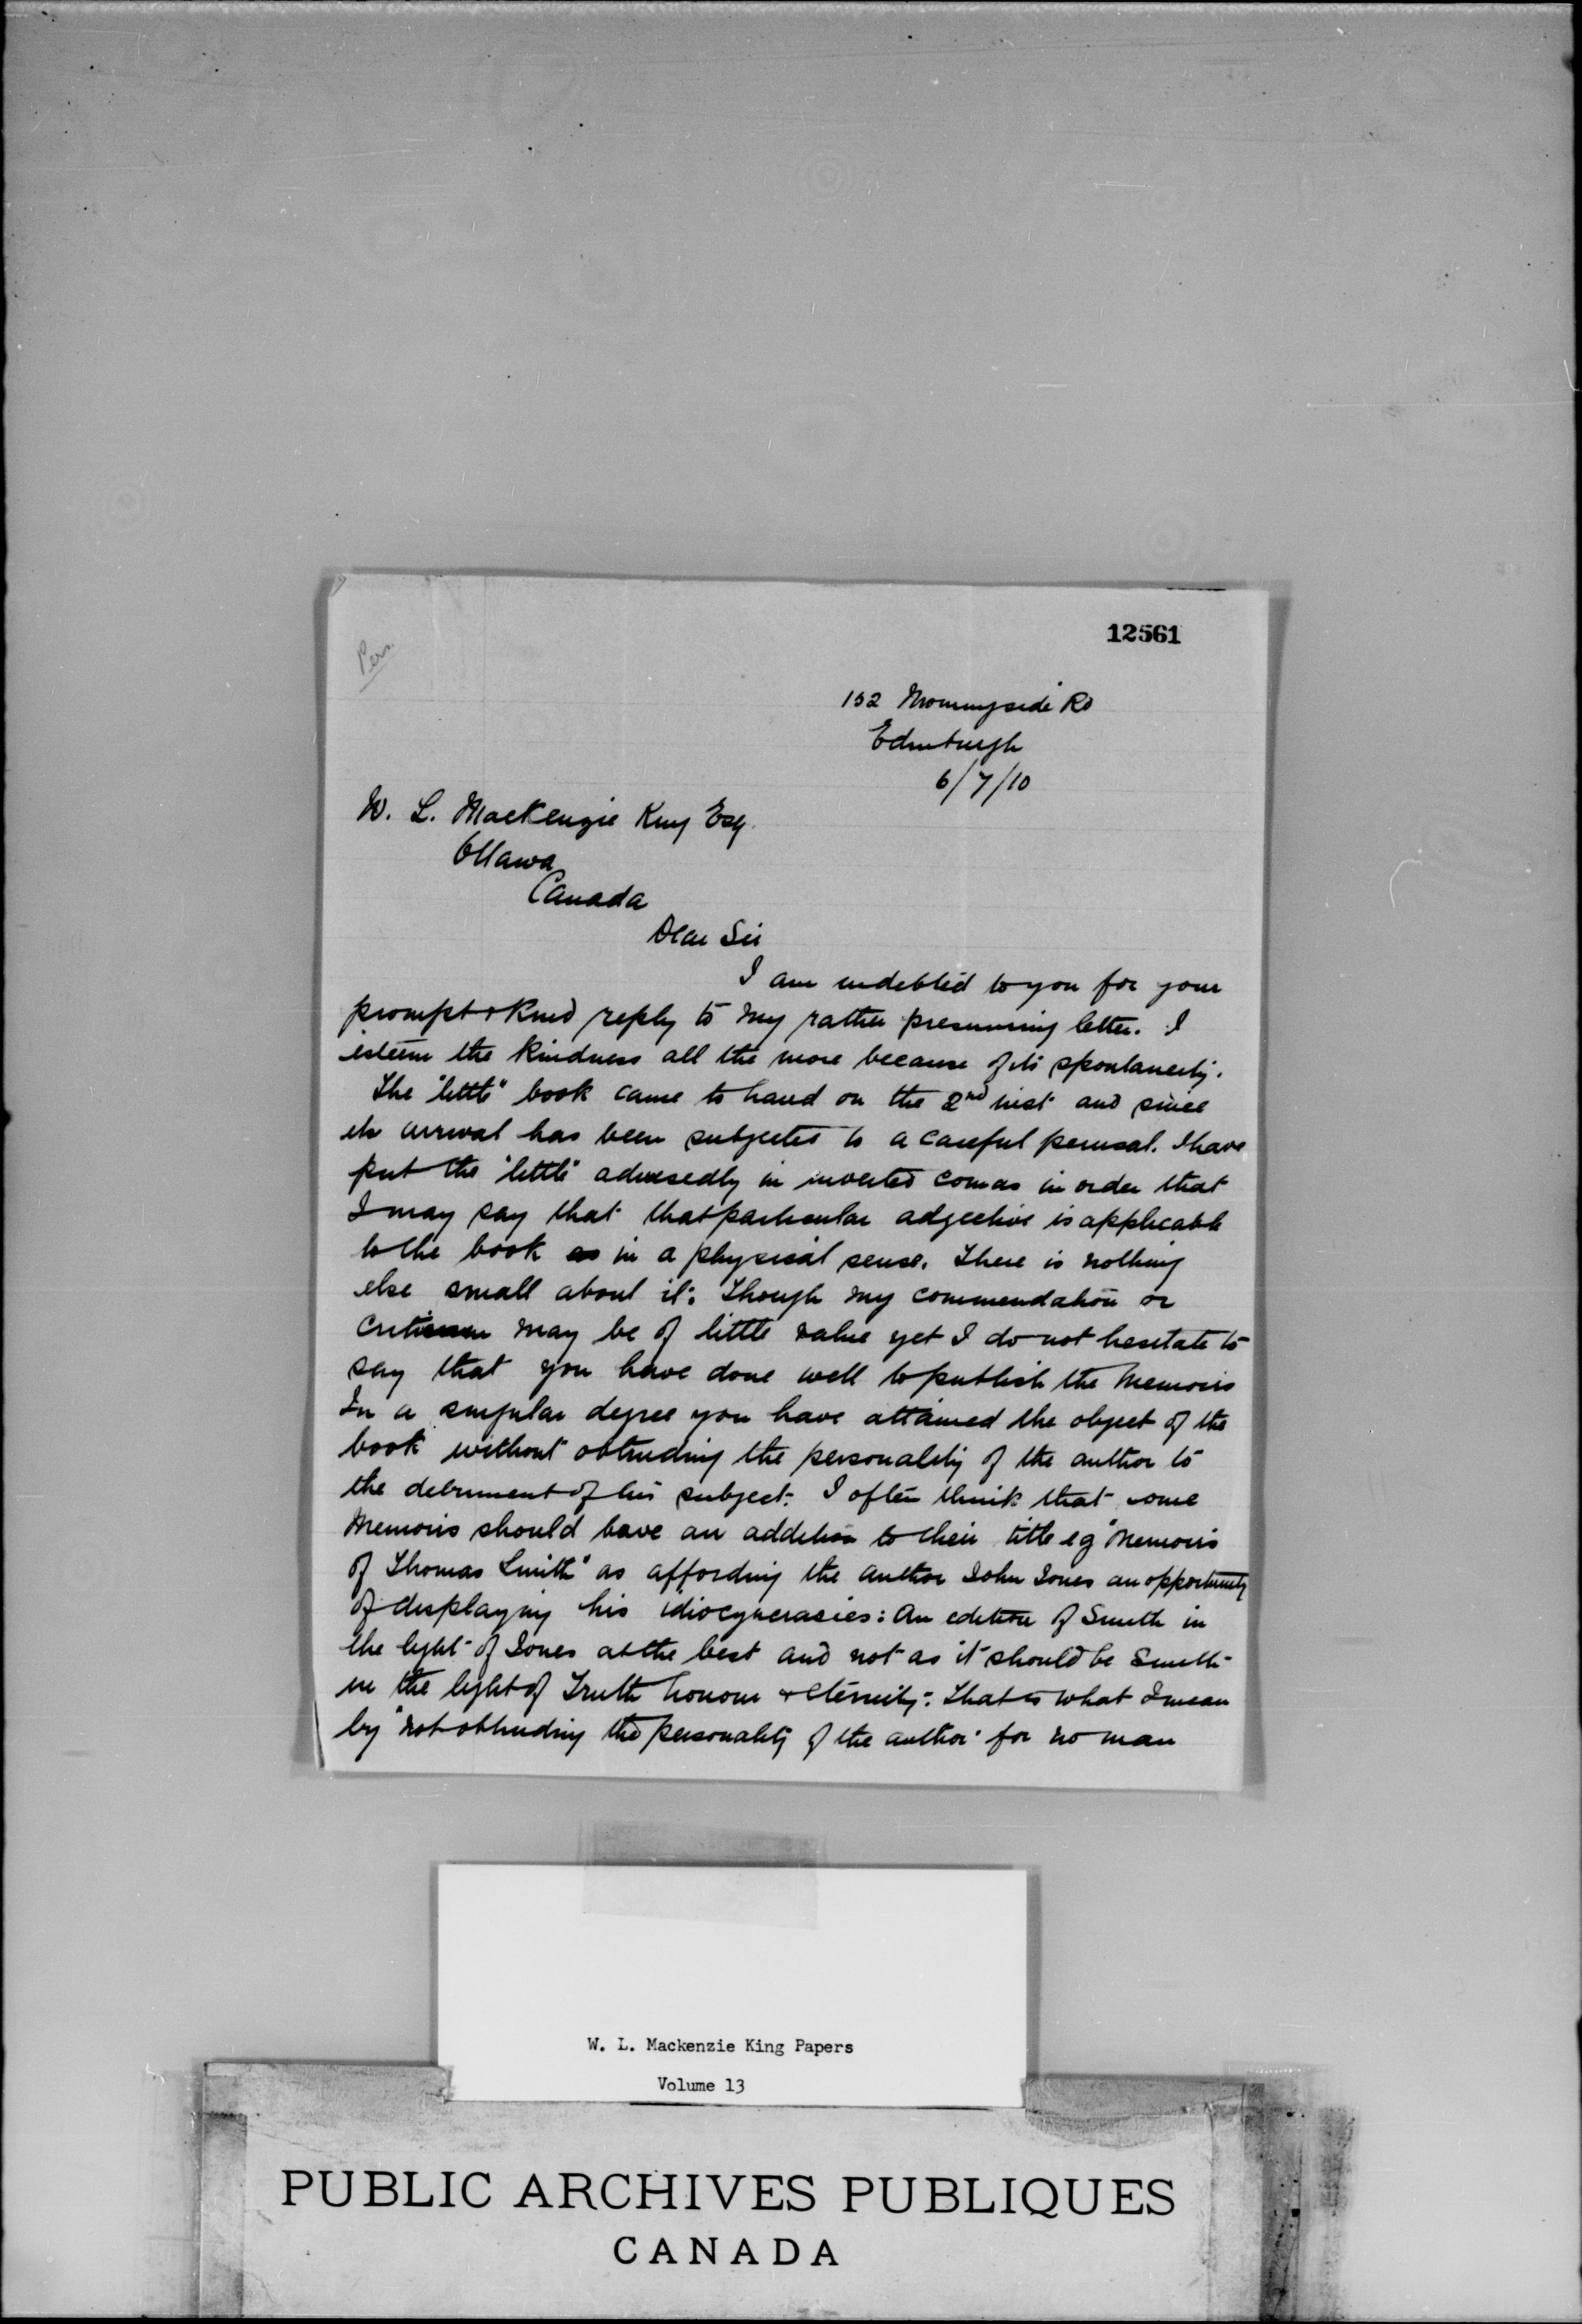 12561
Pers.
152 Morningside Rd
Edinburgh
6/7/10
W. L. MacKenzie King Esq.
Ottawa
Canada
Dear Sir
I am indebted to you for your
prompt & kind reply to my rather presuming letter. I
esteem the kindness all the more because of its spontaneity.
The "little" book came to hand on the 2nd inst and since
its arrival has been subjected to a careful perusal. I have
put the "little" advisedly in inverted comas in order that
I may say that that particular adjective is applicable
to the book as in a physical sense. There is nothing
else small about it: Though my commendation or
criticism may be of little value yet I do not hesitate to
say that you have done well to publish the Memoirs
In a singular degree you have attained the object of the
book without obtruding the personality of the author to
the detriment of his subject. I often think that some
Memoirs should have an addition to their title eg "Memoirs
of Thomas Smith" as affording the author John Jones an opportunity
of displaying his idiocyncrasies: An edition of Smith in
the light of Jones at the best and not as it should be Smith
in the light of Truth honour & eternity: That is what I mean
by "not obtruding the personality of the author" for no man
W. L. Mackenzie King Papers
Volume 13
PUBLIC ARCHIVES PUBLIQUES
CANADA